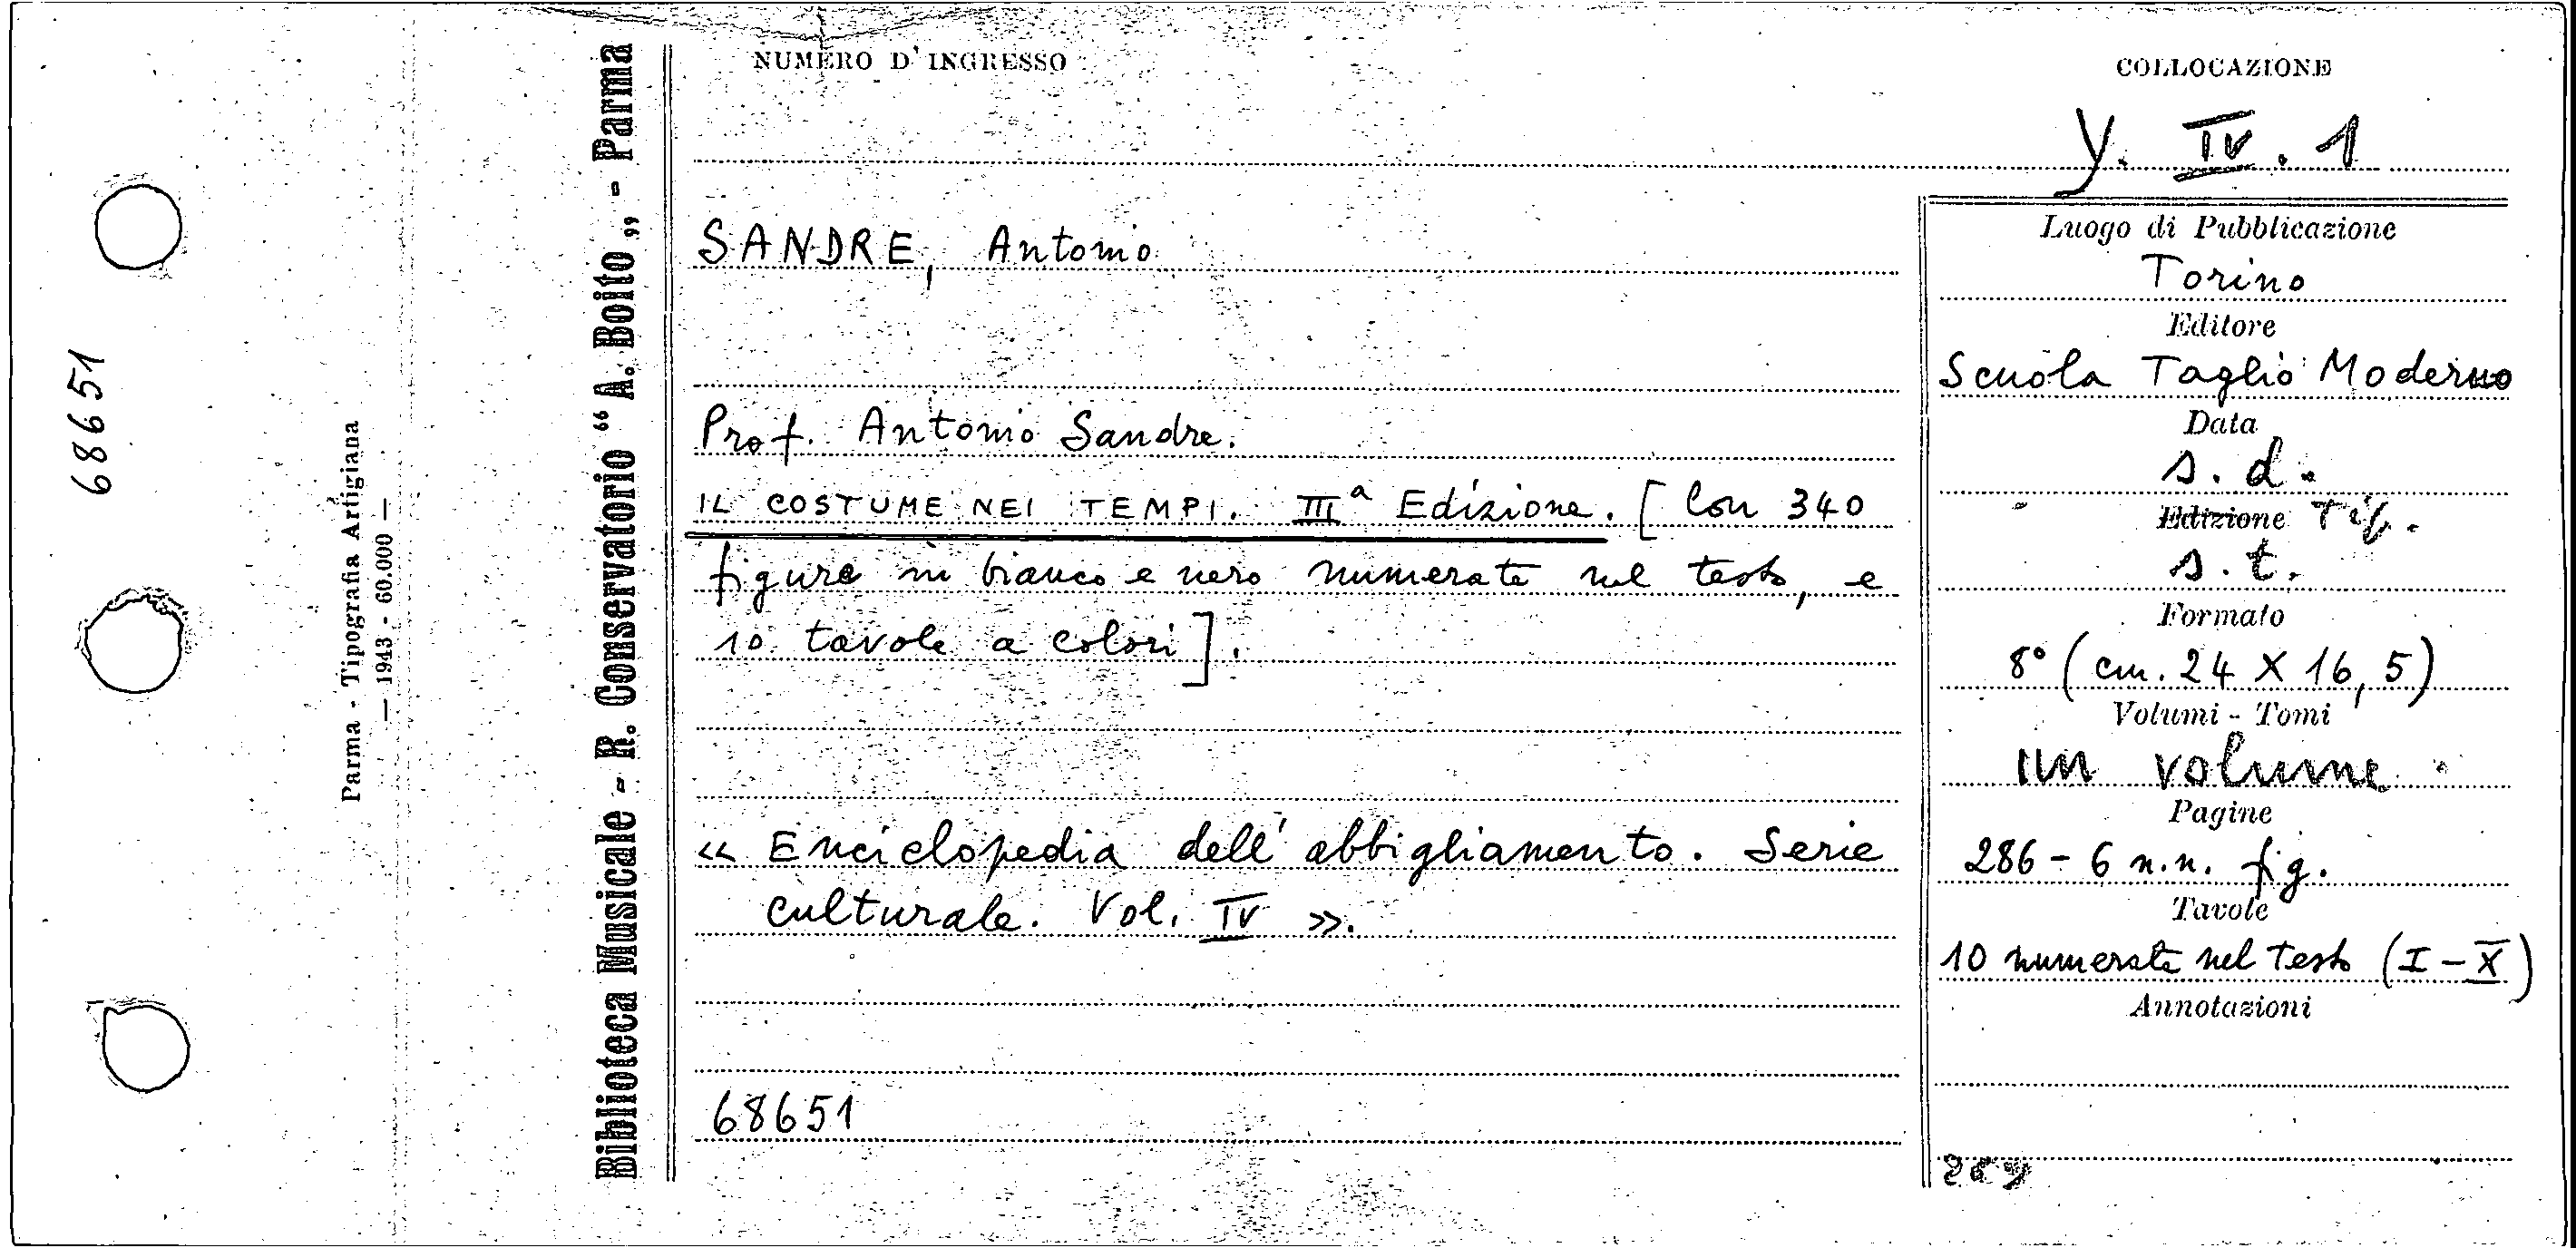 68651
Parma - Tipografia Artigiana
— 1943 - 60.000 —
Biblioteca Musicale - R. Conservatorio “A. Boito„ - Parma
NUMERO D'INGRESSO
COLLOCAZIONE
Y. IV. 1
SANDRE, Antonio
Prof. Antonio Sandre.
IL COSTUME NEI TEMPI. IIIª Edizione. [Con 340
figure in bianco e nero numerate nel testo, e
10 tavole a colori].
« Enciclopedia dell'abbigliamento. Serie
culturale. Vol. IV ».
68651
Luogo di Pubblicazione
Torino
Editore
Scuola Taglio Moderno
Data
s. d.
Edizione Tip.
s. t.
Formato
8° (cm. 24 X 16,5)
Volumi - Tomi
un volume
Pagine
286 - 6 n.n. fig.
Tavole
10 numerate nel testo (I - X)
Annotazioni